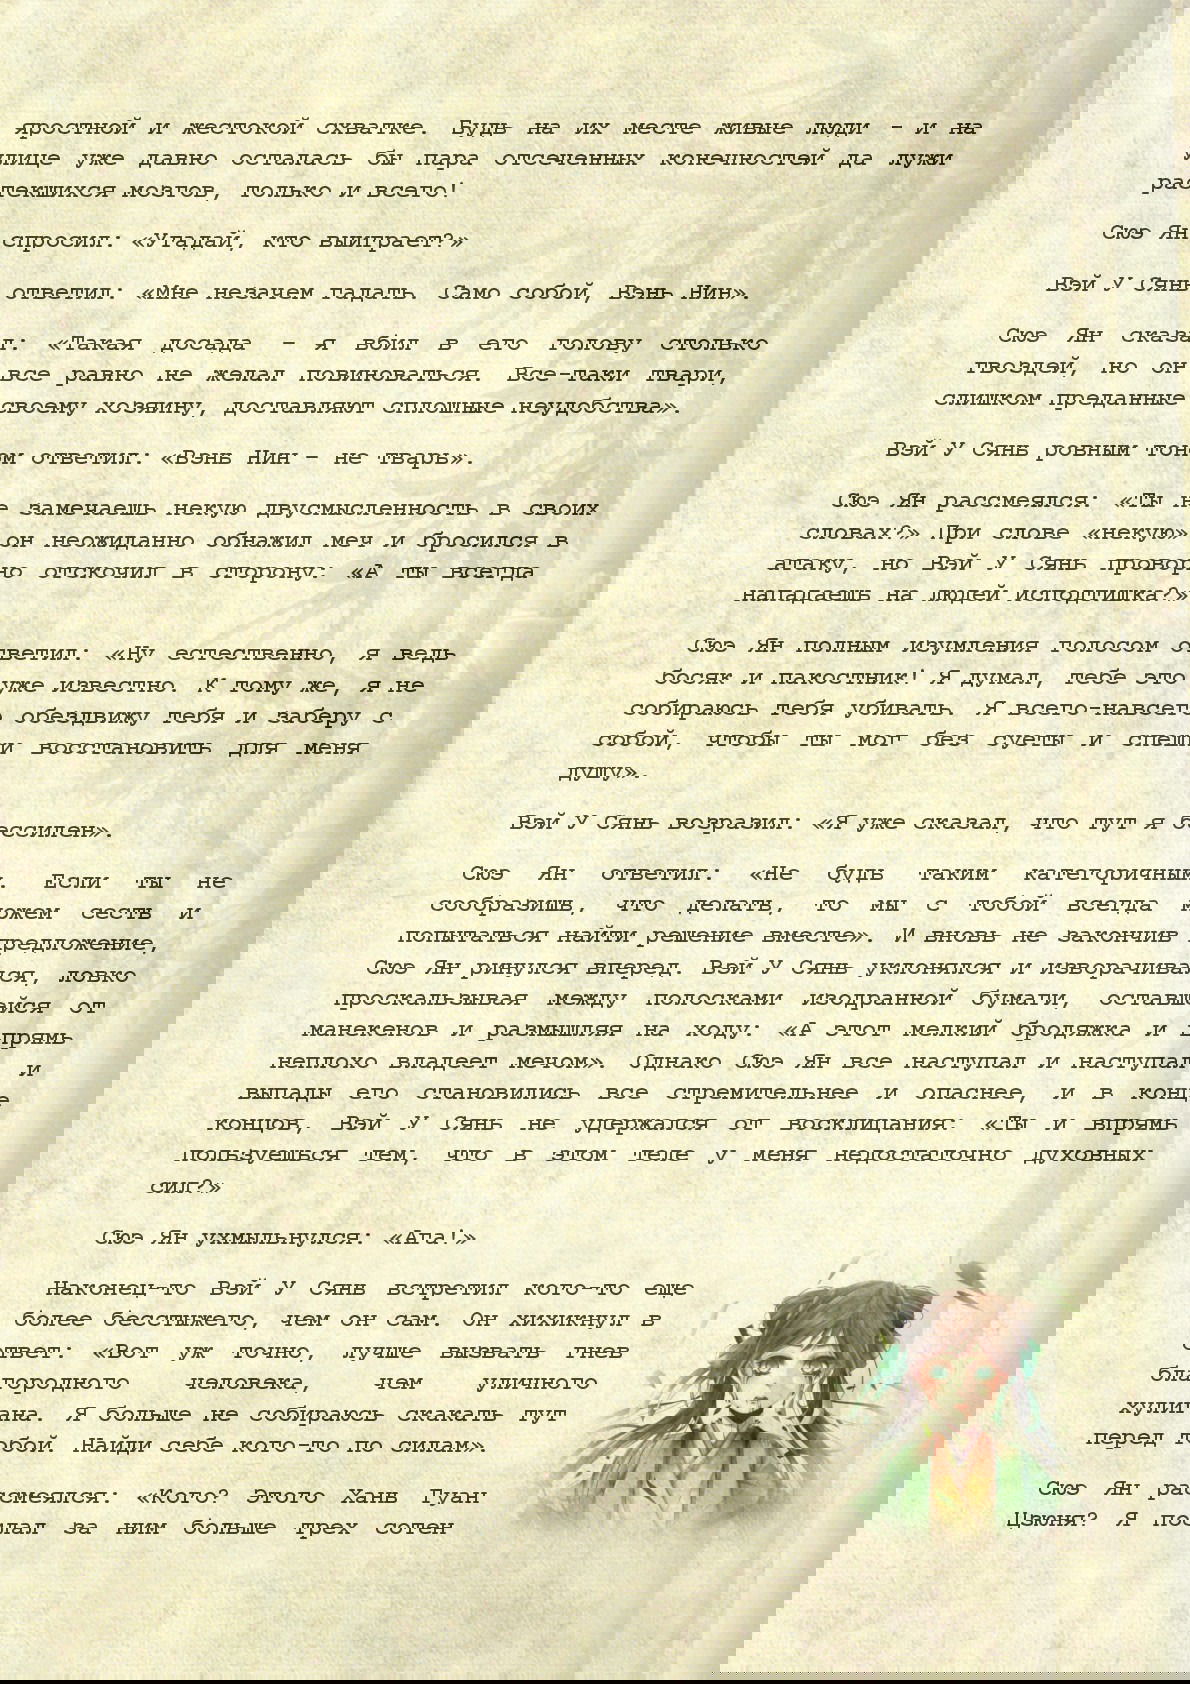 яростной и жестокой схватке. Будь на их месте живые люди – и на
улице уже давно осталась бы пара отсеченных конечностей да лужи
растекшихся мозгов, только и всего!
Сюэ Ян спросил: «Угадай, кто выиграет?»
Вэй У Сянь ответил: «Мне незачем гадать. Само собой, Вэнь Нин».
Сюэ Ян сказал: «Такая досада – я вбил в его голову столько
гвоздей, но он все равно не желал повиноваться. Все-таки твари,
слишком преданные своему хозяину, доставляют сплошные неудобства».
Вэй У Сянь ровным тоном ответил: «Вэнь Нин – не тварь».
Сюэ Ян рассмеялся: «Ты не замечаешь некую двусмысленность в своих
словах?» При слове «некую» он неожиданно обнажил меч и бросился в
атаку, но Вэй У Сянь проворно отскочил в сторону: «А ты всегда
нападаешь на людей исподтишка?»
Сюэ Ян полным изумления голосом ответил: «Ну естественно, я ведь
босяк и пакостник! Я думал, тебе это уже известно. К тому же, я не
собираюсь тебя убивать. Я всего-навсего обездвижу тебя и заберу с
собой, чтобы ты мог без суеты и спешки восстановить для меня
душу».
Вэй У Сянь возразил: «Я уже сказал, что тут я бессилен».
Сюэ Ян ответил: «Не будь таким категоричным. Если ты не
сообразишь, что делать, то мы с тобой всегда можем сесть и
попытаться найти решение вместе». И вновь не закончив предложение,
Сюэ Ян ринулся вперед. Вэй У Сянь уклонялся и изворачивался, ловко
проскальзывая между полосками изодранной бумаги, оставшейся от
манекенов и размышляя на ходу: «А этот мелкий бродяжка и впрямь
неплохо владеет мечом». Однако Сюэ Ян все наступал и наступал, и
выпады его становились все стремительнее и опаснее, и в конце
концов, Вэй У Сянь не удержался от восклицания: «Ты и впрямь
пользуешься тем, что в этом теле у меня недостаточно духовных
сил?»
Сюэ Ян ухмыльнулся: «Ага!»
Наконец-то Вэй У Сянь встретил кого-то еще
более бесстыжего, чем он сам. Он хихикнул в
ответ: «Вот уж точно, лучше вызвать гнев
благородного человека, чем уличного
хулигана. Я больше не собираюсь скакать тут
перед тобой. Найди себе кого-то по силам».
Сюэ Ян рассмеялся: «Кого? Этого Хань Гуан
Цзюня? Я послал за ним больше трех сотен